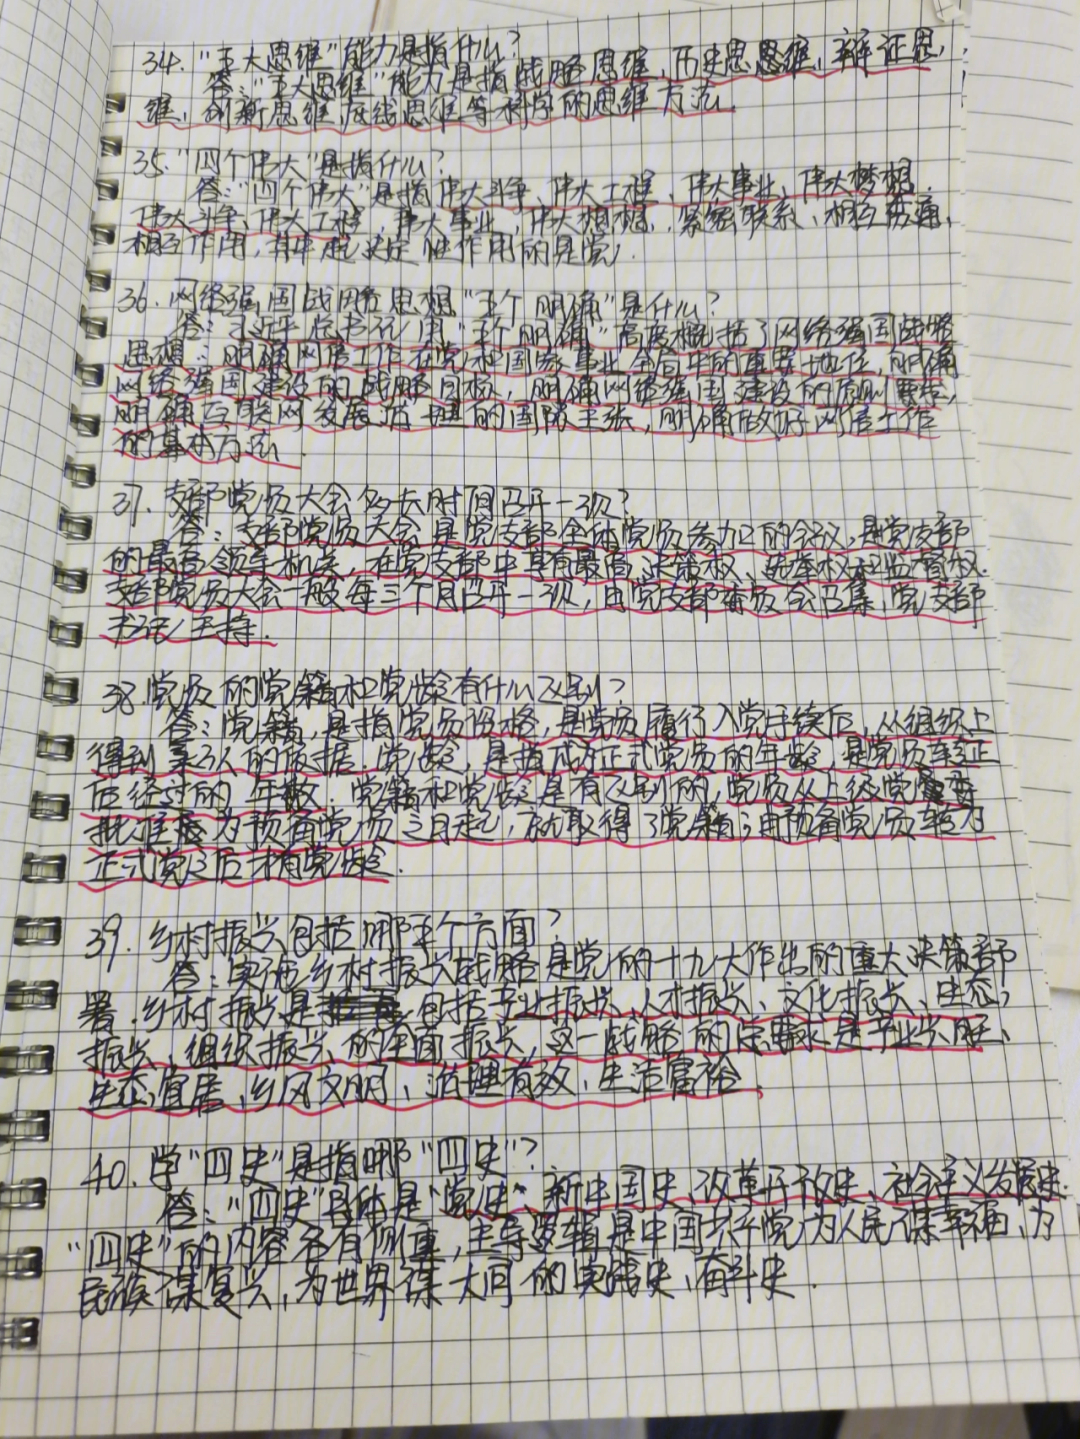 34. "五大思维"能力是指什么?
答:"五大思维"能力是指战略思维、历史思思维、辩证思
维、创新思维、底线思维等科学的思维方法.
35."四个伟大"是指什么?
答:"四个伟大"是指伟大斗争、伟大工程、伟大事业、伟大梦想.
伟大斗争、伟大工程,伟大事业,伟大想想,紧密联系、相互贯通、
相互作用,其中起决定性作用的是党,
36.网络强国战略思想"五个明确"是什么?
答:习近平总书记用"五个明确"高度概括了网络强国战略
思想:明确网信工作在党和国家事业全局中的重要地位,明确
网络强国建设的战略目标,明确网络强国建设的原则要求,
明确互联网发展治理的国际主张,明确做好网信工作
的基本方法.
37.支部党员大会多长时间召开一次?
答:支部党员大会是党支部全体党员参加的会议,是党支部
的最高领导机关,在党支部中享有最高决策权、选举权和监督权.
支部党员大会一般每三个月召开一次,由党支部委员会召集,党支部
书记主持.
38.党员的党籍和党龄有什么区别?
答:党籍,是指党员资格,是党员履行入党手续后,从组织上
得到承认的依据.党龄,是指成为正式党员的年龄,是党员转正
后经过的年数,党籍和党龄是有区别的,党员从上级党委
批准为预备党员之日起,就取得了党籍;由预备党员转为
正式党之后才有党龄.
39.乡村振兴包括哪五个方面?
答:实施乡村振兴战略是党的十九大作出的重大决策部
署.乡村振兴是包括产业振兴、人才振兴、文化振兴、生态
振兴、组织振兴的全面振兴,这一战略的总要求是产业兴旺、
生态宜居、乡风文明、治理有效、生活富裕.
40.学"四史"是指哪"四史"?
答:"四史"具体是"党史"、新中国史、改革开放史、社会主义发展史.
"四史"的内容各有侧重,主导逻辑是中国共产党为人民谋幸福、为
民族谋复兴,为世界谋大同的实践史、奋斗史.